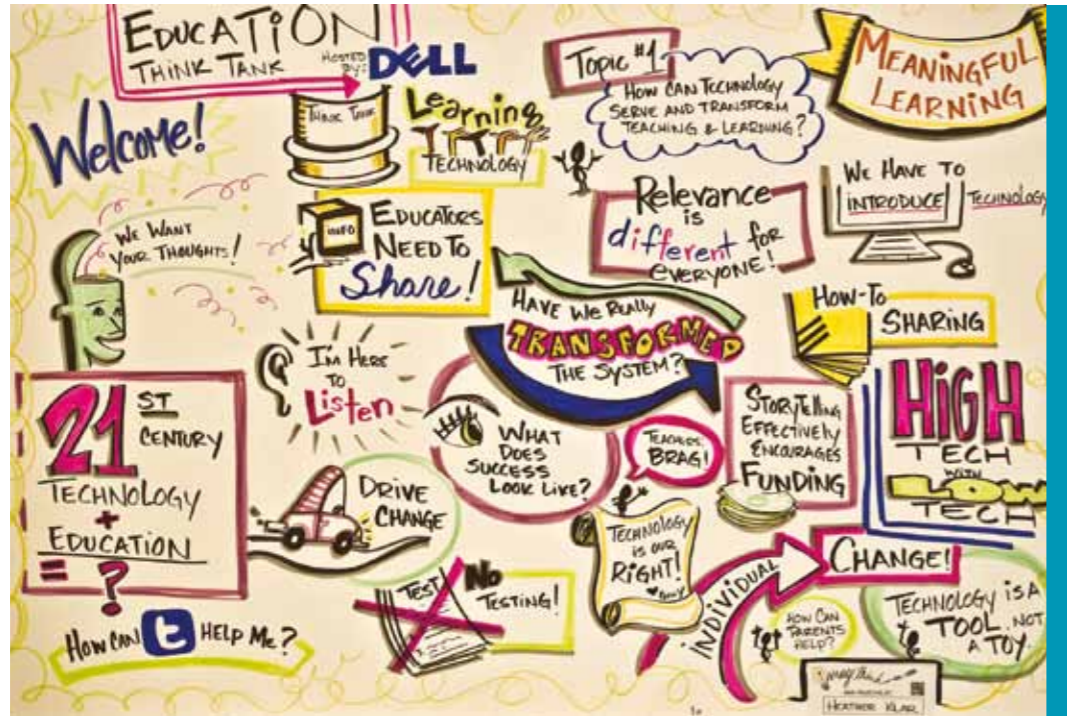 EDUCATION
THINK TANK
HOSTED
BY:
DELL
Welcome!
THINK TANK
Learning
TECHNOLOGY
Topic #1
HOW CAN TECHNOLOGY
SERVE AND TRANSFORM
TEACHING & LEARNING?
MEANINGFUL
LEARNING
WE WANT
YOUR THOUGHTS!
INFO
EDUCATORS
NEED TO
Share!
Relevance
is
different for
everyone!
WE HAVE TO
INTRODUCE TECHNOLOGY
HAVE WE REALLY
TRANSFORMED
THE SYSTEM?
HOW-TO
SHARING
I'm Here
TO
Listen
21ST
CENTURY
TECHNOLOGY
+
EDUCATION
=
?
WHAT
DOES
SUCCESS
LOOK LIKE?
TEACHERS:
BRAG!
STORYTELLING
EFFECTIVELY
ENCOURAGES
FUNDING
HIGH
TECH
WITH
LOW
TECH
DRIVE
CHANGE
TEST
NO
TESTING!
TECHNOLOGY
IS OUR
RIGHT!
INDIVIDUAL
CHANGE!
HOW CAN
PARENTS
HELP?
TECHNOLOGY IS A
TOOL, NOT
A TOY.
HOW CAN t HELP ME?
HEATHER KLAR